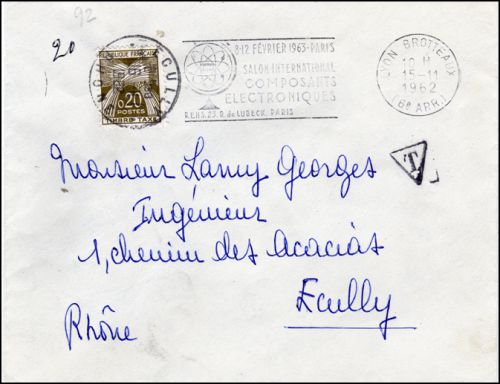 92
20
REPUBLIQUE FRANÇAISE
0,20
POSTES
TIMBRE TAXE
ECULLY
8-12 FÉVRIER 1963-PARIS
SALON INTERNATIONAL
COMPOSANTS
ELECTRONIQUES
RENS. 23. R. de LUBECK. PARIS
LYON BROTTEAUX
18 H
15-11
1962
(6e ARR.)
T
Monsieur Lamy Georges
Ingénieur
1, chemin des Acacias
Ecully
Rhône